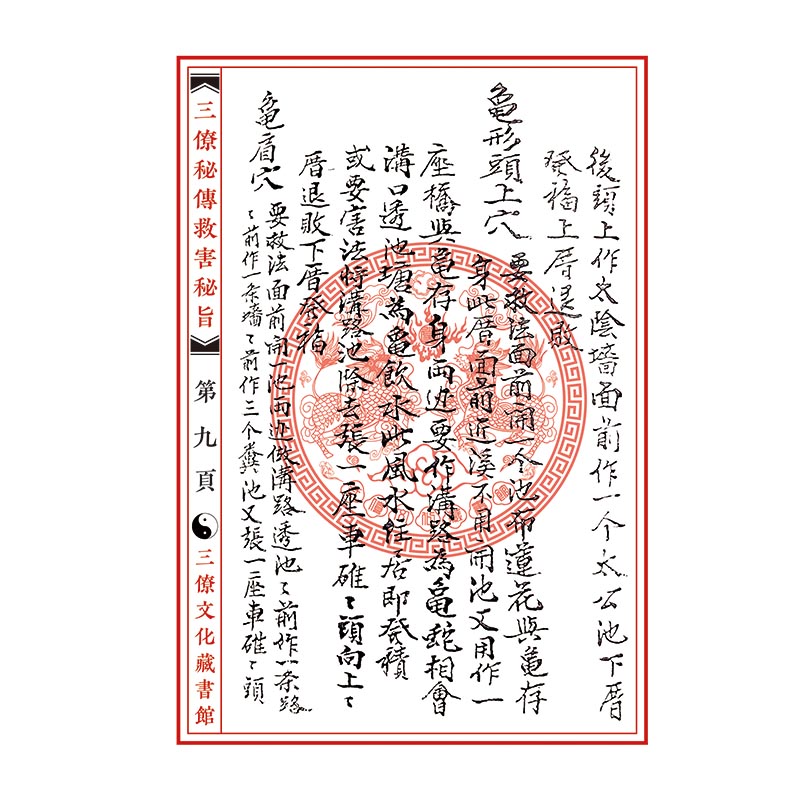 後頭上作太陰墻面前作一个太公池下厝
發福上厝退敗
龜形頭上穴
要救法面前開一个池布蓮花與龜存
身此厝面前近溪不用開池又用作一
座橋與龜存身兩边要作溝路為龜蛇相會
溝口透池塘為龜飲水此風水經居即發積
或要害法将溝路池除去張一座車碓〻頭向上〻
厝退敗下厝發福
龜肩穴
要救法面前開一池兩边做溝路透池〻前作一条路
〻前作一条墻〻前作三个糞池又張一座車碓〻頭
三僚秘傳救害秘旨
第九頁
三僚文化藏書館